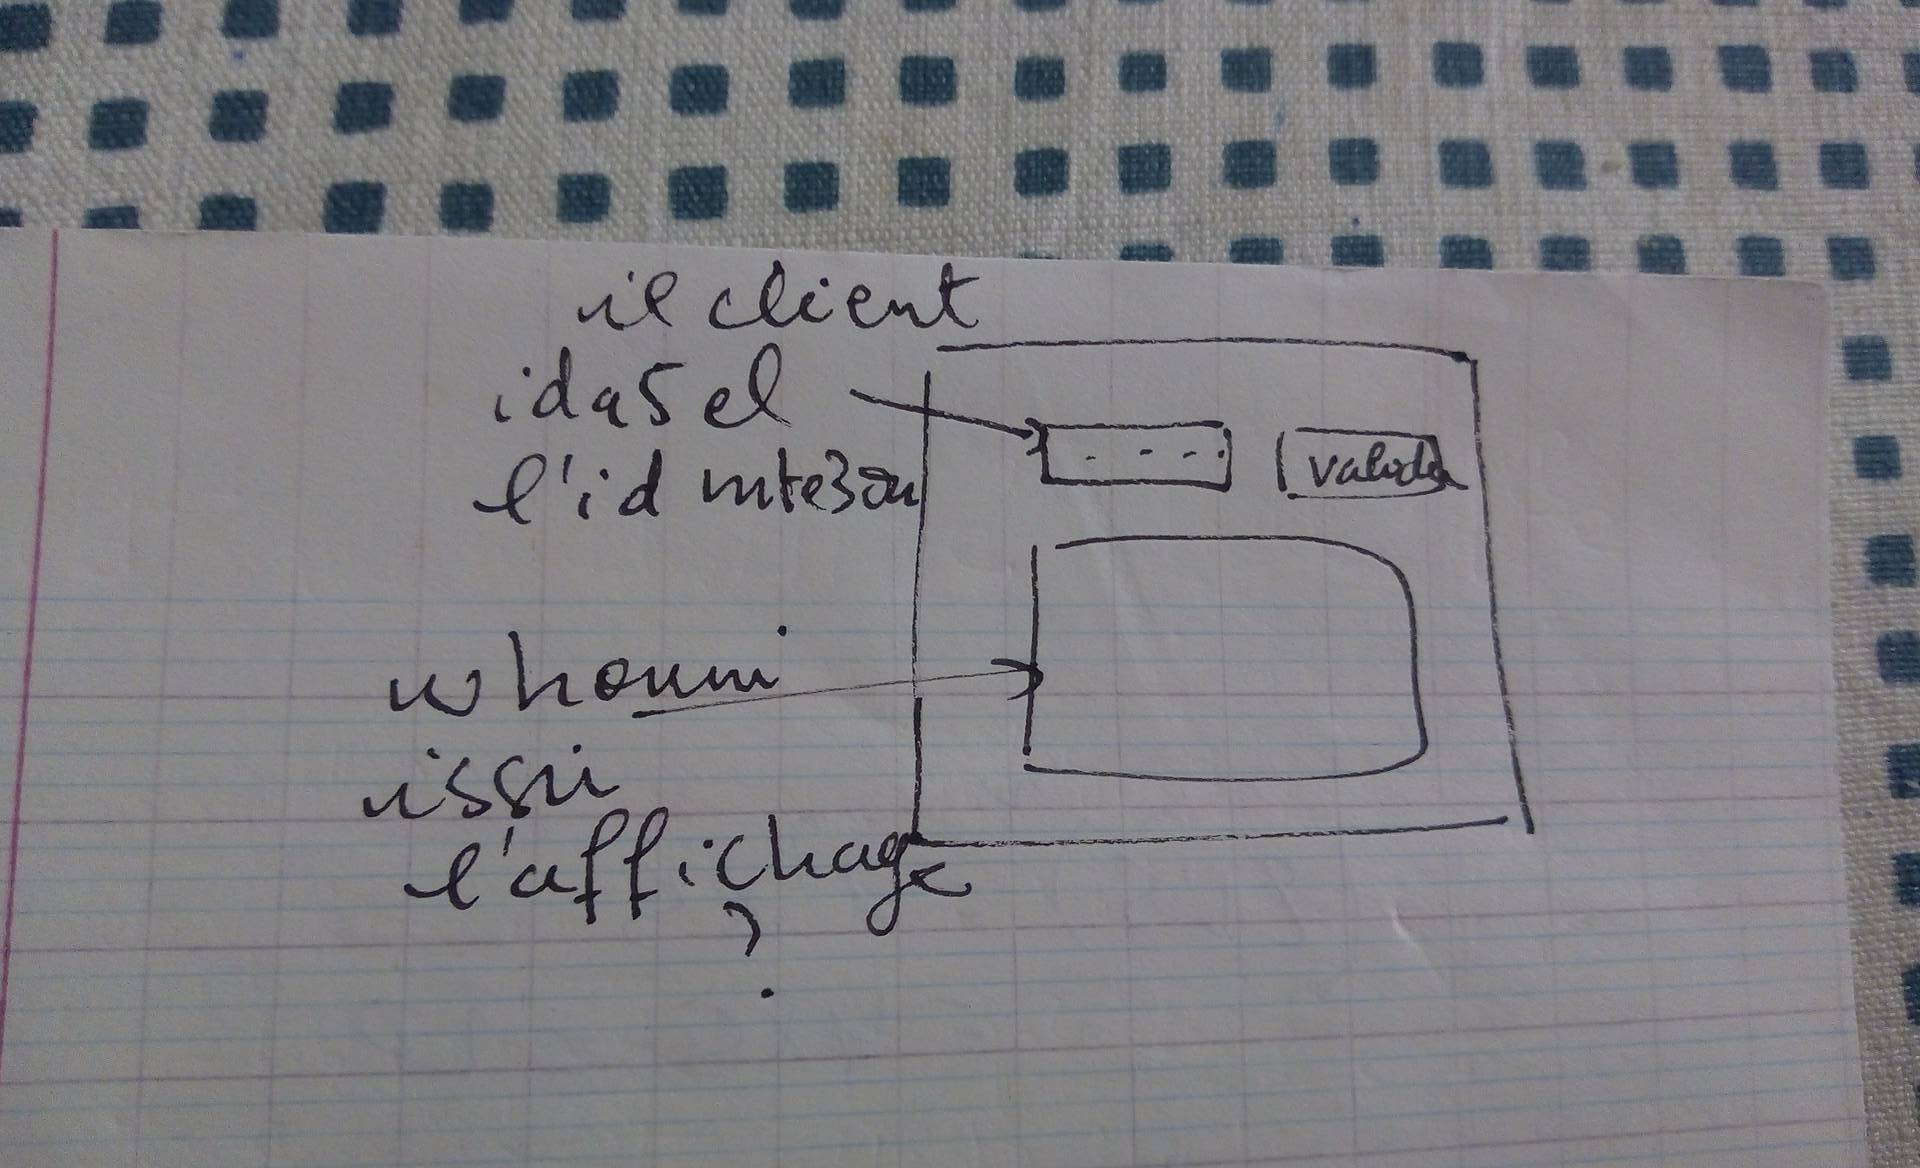 il client
ida5el
l'id mte3ou
valider
whouni
issir
l'affichage
?